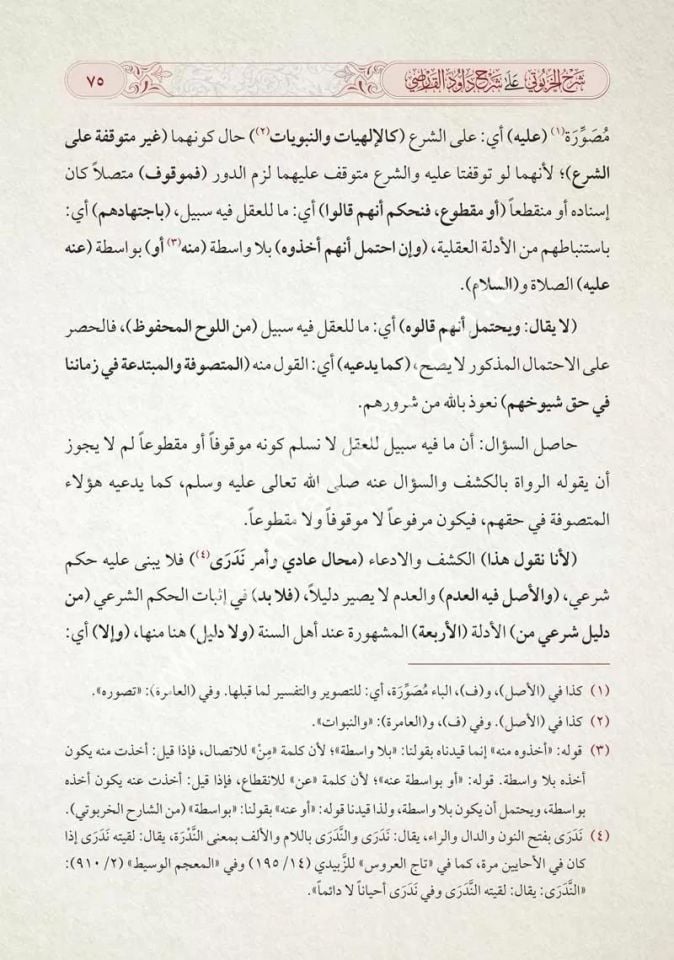 شرح الخربوتي على شرح داود القارصي
٧٥
مُصَوِّرَة(١) (عليه) أي: على الشرع (كالإلهيات والنبويات(٢)) حال كونهما (غير متوقفة على
الشرع)؛ لأنهما لو توقفتا عليه والشرع متوقف عليهما لزم الدور (فموقوف) متصلاً كان
إسناده أو منقطعاً (أو مقطوع، فنحكم أنهم قالوا) أي: ما للعقل فيه سبيل، (باجتهادهم) أي:
باستنباطهم من الأدلة العقلية، (وإن احتمل أنهم أخذوه) بلا واسطة (منه(٣) أو) بواسطة (عنه
عليه) الصلاة و(السلام).
(لا يقال: ويحتمل أنهم قالوه) أي: ما للعقل فيه سبيل (من اللوح المحفوظ)، فالحصر
على الاحتمال المذكور لا يصح، (كما يدعيه) أي: القول منه (المتصوفة والمبتدعة في زماننا
في حق شيوخهم) نعوذ بالله من شرورهم.
حاصل السؤال: أن ما فيه سبيل للعقل لا نسلم كونه موقوفاً أو مقطوعاً لم لا يجوز
أن يقوله الرواة بالكشف والسؤال عنه صلى الله تعالى عليه وسلم، كما يدعيه هؤلاء
المتصوفة في حقهم، فيكون مرفوعاً لا موقوفاً ولا مقطوعاً.
(لأنا نقول هذا) الكشف والادعاء (محال عادي وأمر نَدَرَى(٤)) فلا يبنى عليه حكم
شرعي، (والأصل فيه العدم) والعدم لا يصير دليلاً، (فلا بد) في إثبات الحكم الشرعي (من
دليل شرعي من) الأدلة (الأربعة) المشهورة عند أهل السنة (ولا دليل) هنا منها، (وإلا) أي:
(١) كذا في (الأصل)، و(ف)، الباء مُصَوِّرَة، أي: للتصوير والتفسير لما قبلها. وفي (العامرة): «تصوره».
(٢) كذا في (الأصل). وفي (ف)، و(العامرة): «والنبوات».
(٣) قوله: «أخذوه منه» إنما قيدناه بقولنا: «بلا واسطة»؛ لأن كلمة «مِنْ» للاتصال، فإذا قيل: أخذت منه يكون
أخذه بلا واسطة. قوله: «أو بواسطة عنه»؛ لأن كلمة «عن» للانقطاع، فإذا قيل: أخذت عنه يكون أخذه
بواسطة، ويحتمل أن يكون بلا واسطة، ولذا قيدنا قوله: «أو عنه» بقولنا: «بواسطة» (من الشارح الخربوتي).
(٤) نَدَرَى بفتح النون والدال والراء، يقال: نَدَرَى والنَّدَرَى باللام والألف بمعنى النَّدْرَة، يقال: لقيته نَدَرَى إذا
كان في الأحايين مرة، كما في «تاج العروس» للزَّبيدي (١٤/ ١٩٥) وفي «المعجم الوسيط» (٢/ ٩١٠):
«النَّدَرَى: يقال: لقيته النَّدَرَى وفي نَدَرَى أحياناً لا دائماً».